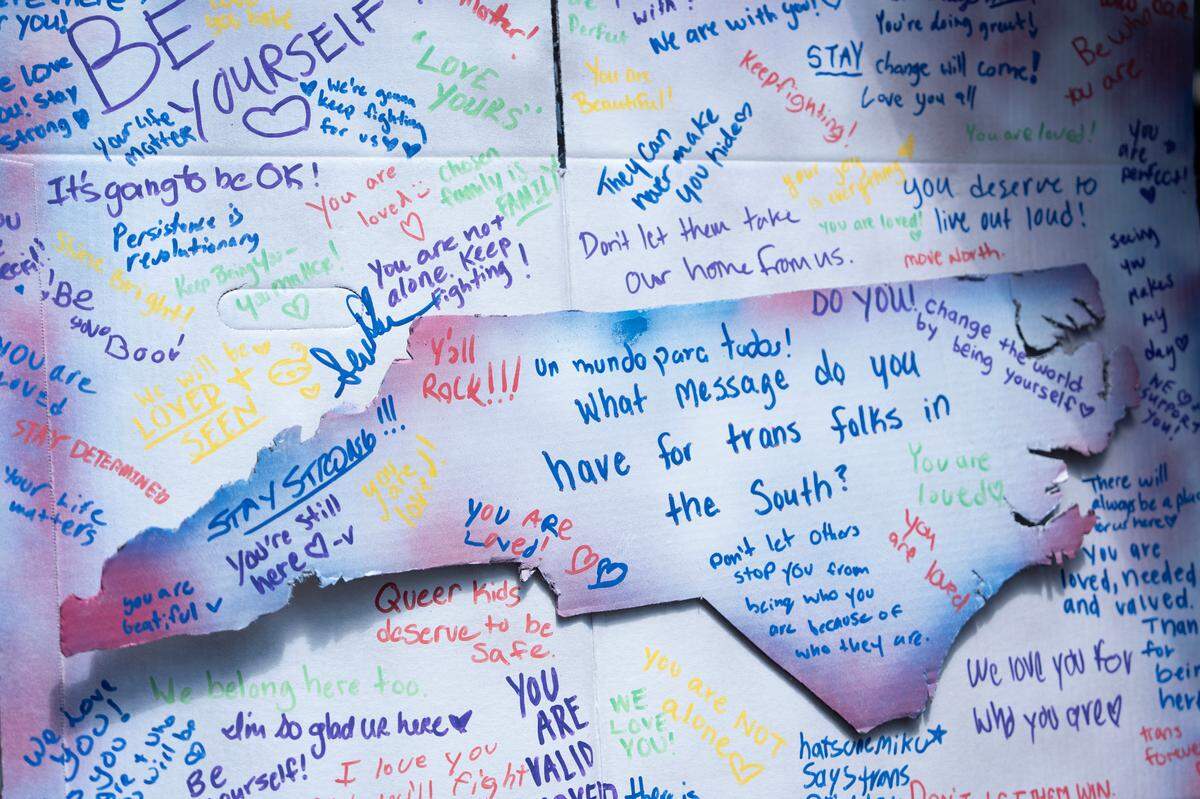 BE
YOURSELF
matter!
"LOVE
YOURS"
We're gonna
keep fighting
for us
Your Life
matters
e love
ou! Stay
Strong
Perfect
We are with you!
You are
Beautiful!
Keep fighting!
You're doing great!
STAY change will come!
Love you all
Be who
You are
You are loved!
They can
never make
you hideos
You
are
perfect!
It's going to be OK!
You are
loved
Chosen
family is
FAMILY
Persistence is
revolutionary
Shine Bright!
Keep Being You -
You matter!
You are not
alone. Keep
fighting!
Be
you Boo!
Don't let them take
our home from us.
your joy
is everything
you are loved!
you deserve to
live out loud!
move North.
seeing
you
makes
my
day
WE
SUPPORT
YOU!
YOU are
Loved
We will be
LOVED +
SEEN
STAY DETERMINED
Your Life
matters
Y'all
ROCK!!!
DO YOU!
Change the world
by being yourself
un mundo para todos!
What message do you
have for trans folks in
the South?
STAY STRONG!!!
you are
loved!
You're still
here -v
you are
beatiful
YOU ARE
Loved!
You are
loved
You
are loved
Don't let others
stop you from
being who you
are because of
who they are.
There will
always be a
You are
loved, needed
and valued.
Queer kids
deserve to be
Safe.
We belong here too.
I'm so glad ur here
We Love
YOU!
Be
yourself!
I love you
will fight
YOU
ARE
VALID
WE
LOVE
YOU!
You are NOT
alone
We love you for
who you are
Than
for
bein
her
trans
hatsune miku
Says trans
there is
DON'T LET THEM WIN.